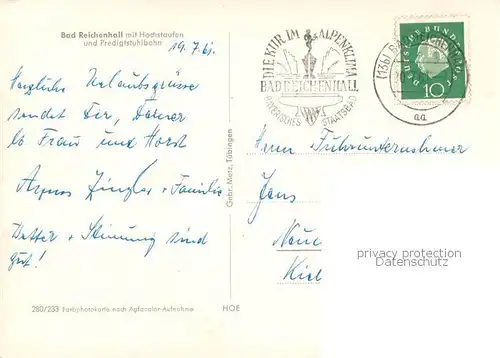 Bad Reichenhall mit Hochstaufen
und Predigtstuhlbahn
19.7.61.
Herzliche Urlaubsgrüsse
sendet Dir, Deiner
lb Frau und Horst
Familie
Wetter + Stimmung sind
gut!
280/233 Farbphotokarte nach Agfacolor-Aufnahme
HOE
Gebr. Metz, Tübingen
DIE KUR IM ALPENKLIMA
BAD REICHENHALL
BAYERISCHES STAATSBAD
(13b) BAD REICHENHALL
aa
DEUTSCHE BUNDESPOST
10
Herrn Fuhrunternehmer
Jens
Kiel
privacy protection
Datenschutz